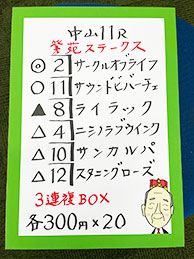 中山11R
紫苑ステークス
◎ 2 サークルオブライフ
○ 11 サウンドビバーチェ
▲ 8 ライラック
△ 4 ニシノラブウインク
△ 10 サンカルパ
△ 12 スタニングローズ
3連複BOX
各300円×20